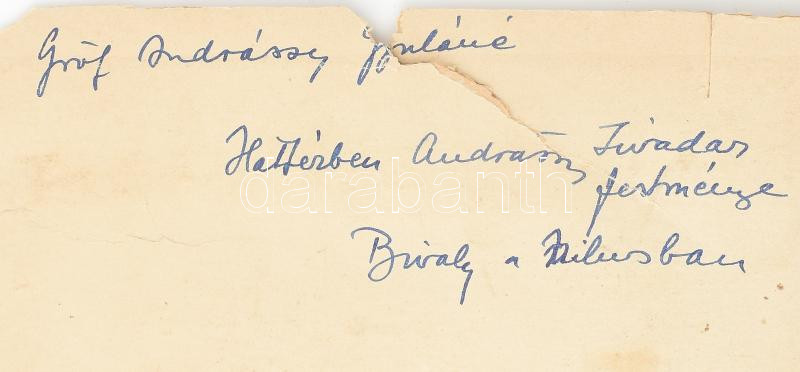 Gróf Andrássy Gyuláné
Háttérben Andrássy Tivadar
festménye
Bivaly a Nilusban
darabanth